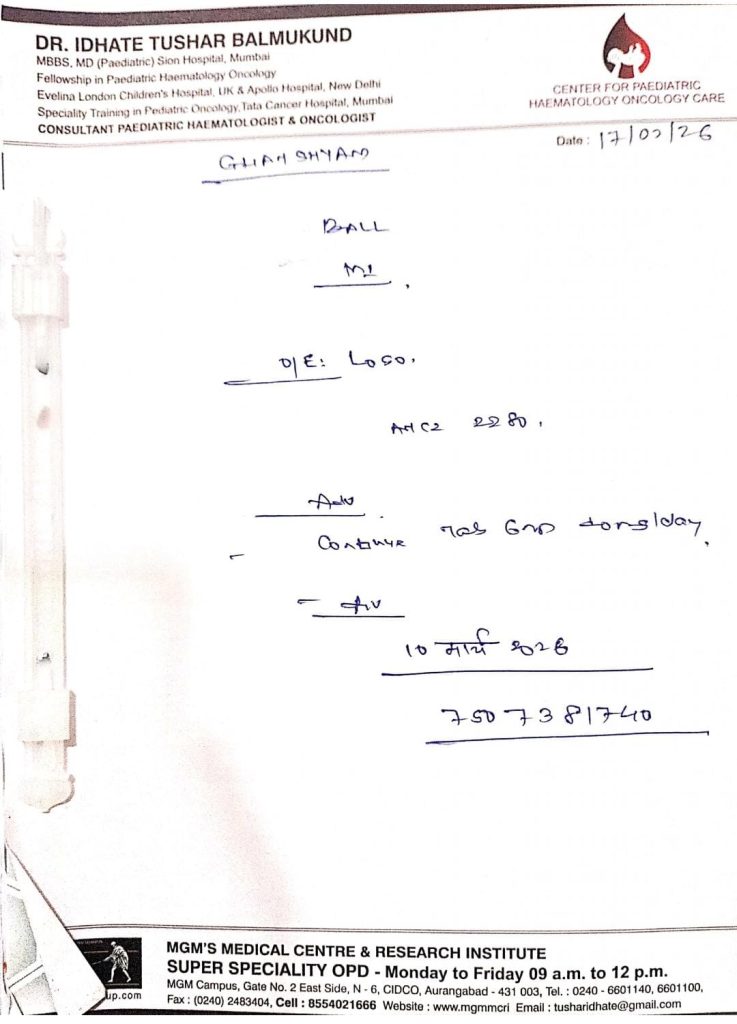 DR. IDHATE TUSHAR BALMUKUND
MBBS, MD (Paediatric) Sion Hospital, Mumbai
Fellowship in Paediatric Haematology Oncology
Evelina London Children's Hospital, UK & Apollo Hospital, New Delhi
Speciality Training in Pediatric Oncology, Tata Cancer Hospital, Mumbai
CONSULTANT PAEDIATRIC HAEMATOLOGIST & ONCOLOGIST
CENTER FOR PAEDIATRIC
HAEMATOLOGY ONCOLOGY CARE
Date : 17/02/26
GHANSHYAM
B-ALL
M1
O/E:
ANC 2280.
Adv
- Continue Tab 6MP /day.
१० मार्च २०२६
7507381740
MGM'S MEDICAL CENTRE & RESEARCH INSTITUTE
SUPER SPECIALITY OPD - Monday to Friday 09 a.m. to 12 p.m.
MGM Campus, Gate No. 2 East Side, N - 6, CIDCO, Aurangabad - 431 003, Tel. : 0240 - 6601140, 6601100,
up.com
Fax : (0240) 2483404, Cell : 8554021666 Website : www.mgmmcri Email : tusharidhate@gmail.com